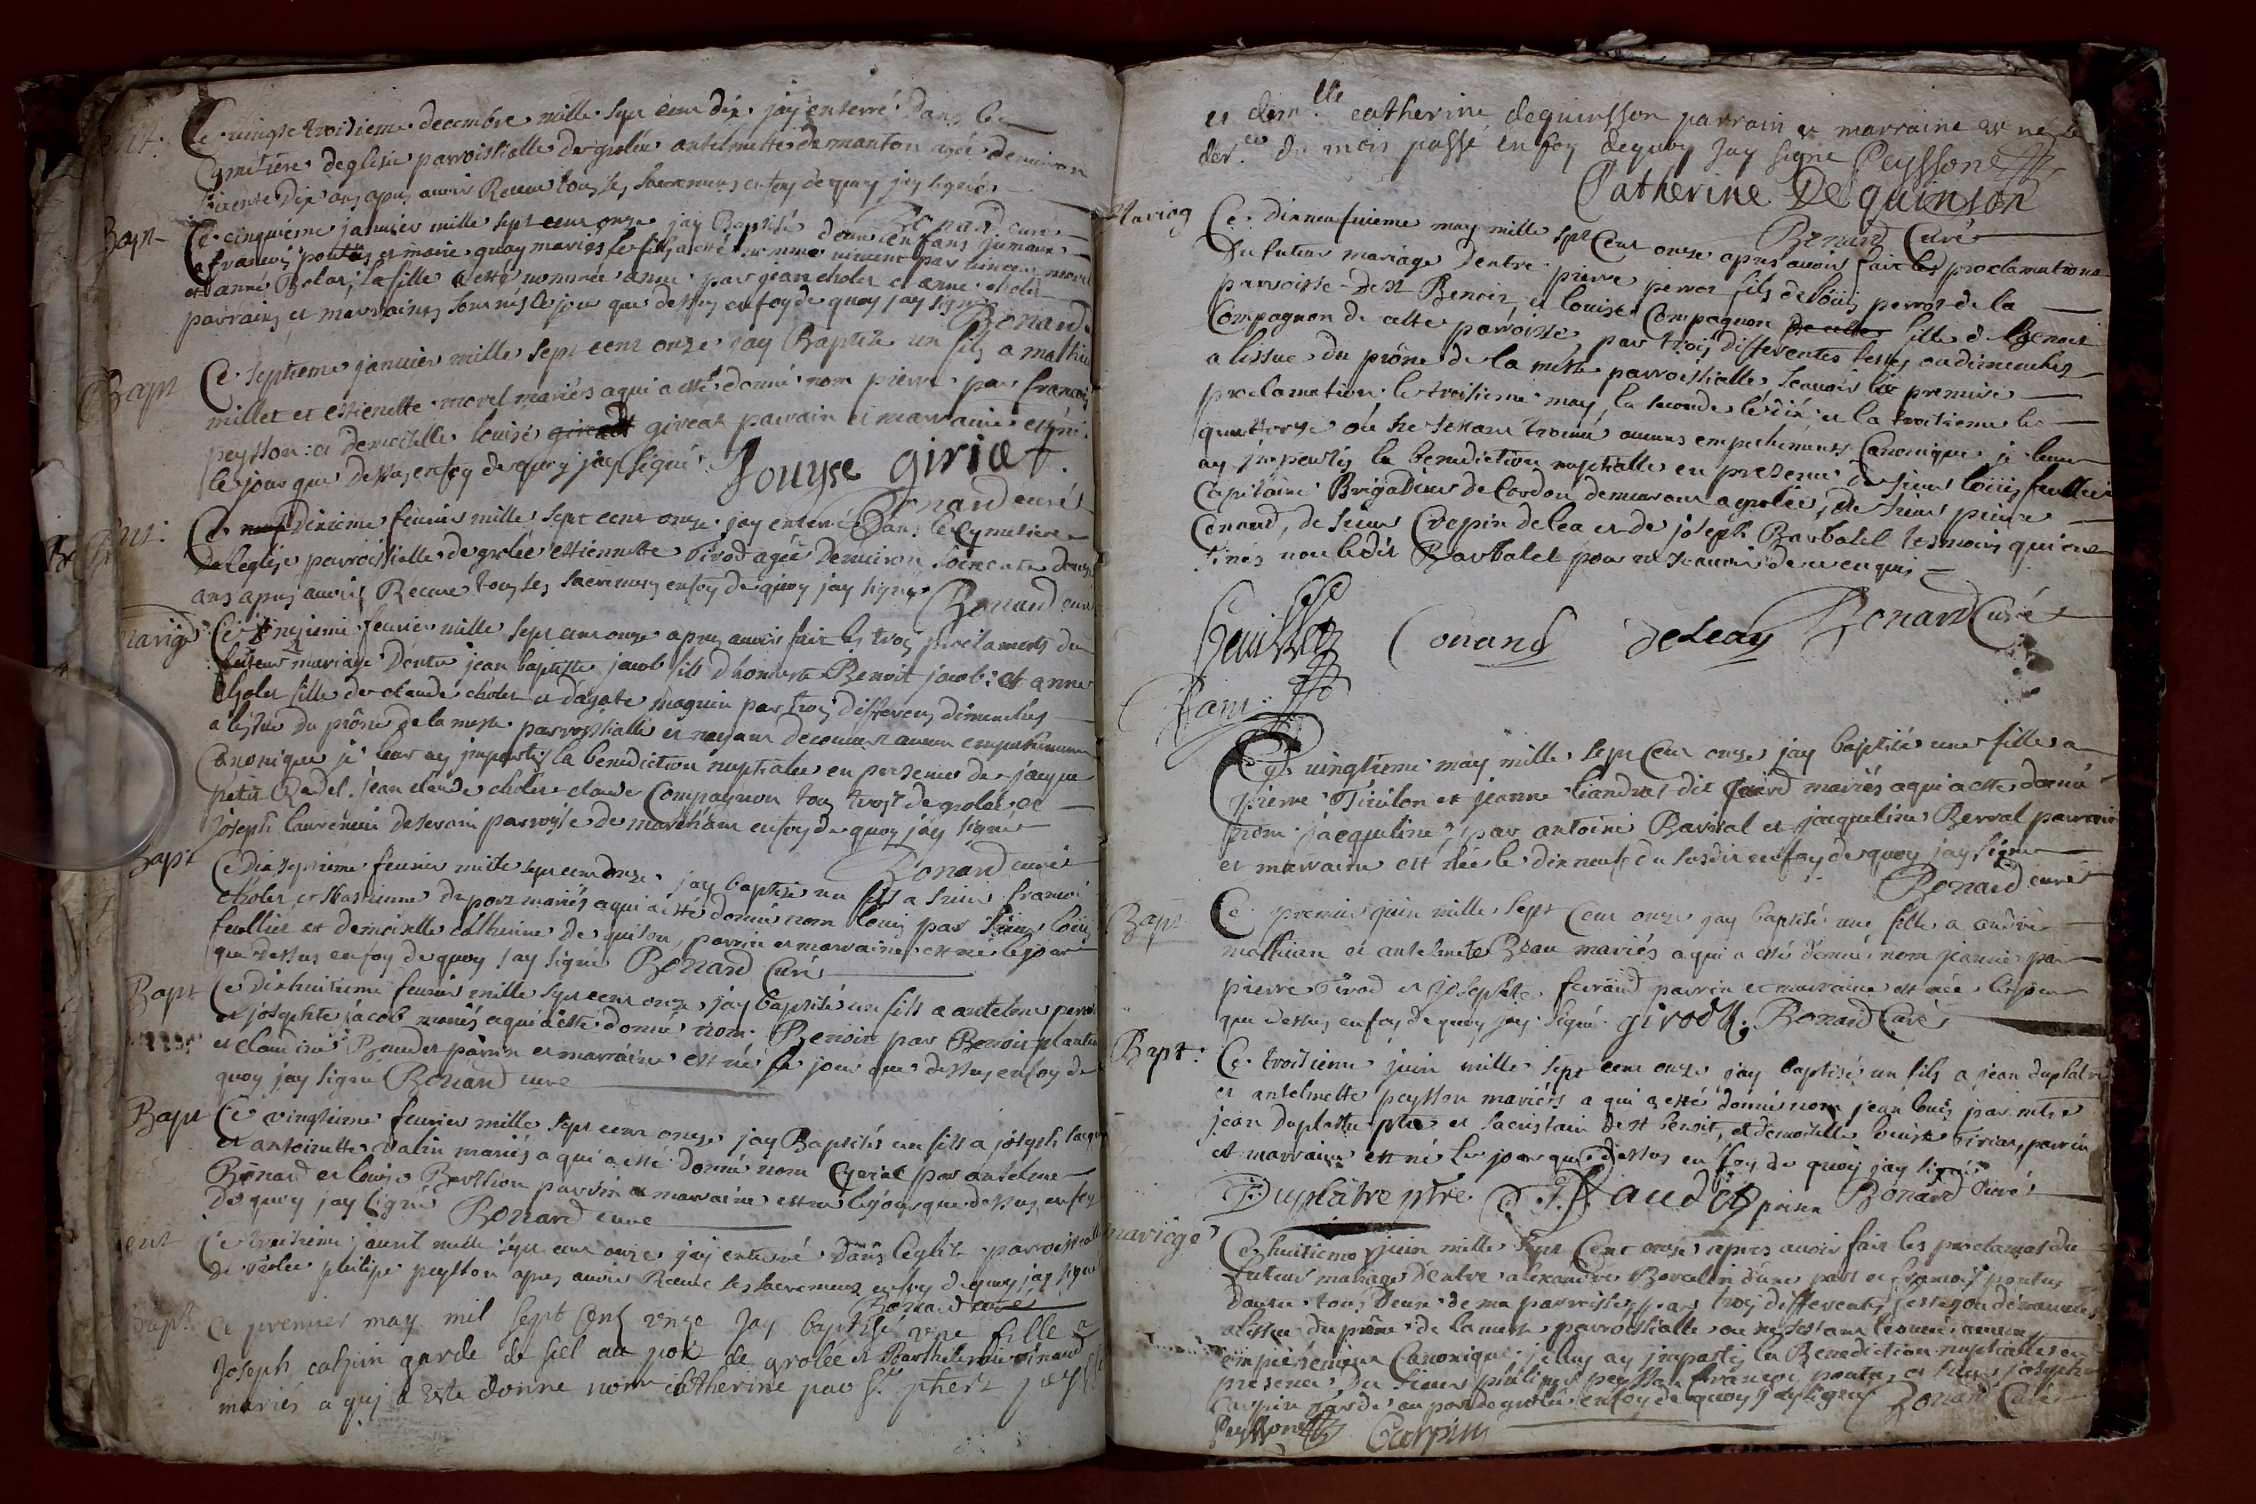 Ce vingt troisieme decembre mille sept cent dix jay enterré dans le
Cymetiere deglise parroissialle de grolée antelmette de manton agée denviron
soixente dix ans apres avoir Receue tous les sacremens en foy de quoy jay signé
Bonard curé
Bapt
Ce cinquieme janvier mille sept cent onze jay Baptisé deux enfans jumaux
a francois pontus et marie quay mariés le fils a esté nomme vincent par vincent morel
et anne la fille a esté nommée anne par jean choler et anne choler
parrains et marraines sont nes le jour que dessus en foy de quoy jay signé
Bonard
Bapt
Ce septieme janvier mille sept cent onze jay Baptisé un fils a mathieu
millet et estienette morel mariés a qui a esté donné nom pierre par francois
peysson et demoiselle louise gireat parrain et marraine est né
le jour que dessus en foy de quoy jay signé
Louyse giriat
Bonard curé
Ce dixieme fevrier mille sept cent onze jay enterré dans le Cymetiere
de leglise parroissialle de grolée estiennette Girod agée denviron soixente douze
ans apres avoir Receue tous les sacremens en foy de quoy jay signé
Bonard curé
mariage
Ce onzieme fevrier mille sept cent onze apres avoir fait les trois proclamats du
futeur mariage dentre jean baptiste jacob fils dhoneste Benoit jacob et anne
choler fille de claude choler et dagate maguin par trois differens dimenches
a lissue du prône de la messe parroissialle et nayant decouvert aucun empechement
Canonique je leur ay impartis la benediction nuptialle en presence de jacque
petit Cadel jean claude choler claude Compagnon tous trois de grolée et
Joseph laurencin de serain parroisse de marcham en foy de quoy jay signé
Bonard curé
Bapt
Ce dix septieme fevrier mille sept cent onze jay baptisé un fils a sieur francois
choler et sebastienne duport mariés a qui a esté donné nom louis par sieur louis
feullier et demoiselle catherine de quison parrin et marraine est né le jour
que dessus en foy de quoy jay signé Bonard Curé
Bapt
Ce dix huitieme fevrier mille sept cent onze jay baptisé un fils a antelme perrot
et josephte jacob mariés a qui a esté donné nom Benoir par Benoir plantin
et claudine Beuder parrin et marraine est né le jour que dessus en foy de
quoy jay signé Bonard curé
Bapt
Ce vingtieme fevrier mille sept cent onze jay Baptisés un fils a joseph
et antoinette valin mariés a qui a esté donné nom par antelme
Bonard et louise Berthion parrin et marraine est né le jour que dessus en foy
de quoy jay signé Bonard curé
ent
Ce troisieme avril mille sept cent onze jay enterré dans leglise parroissialle
de grolée philipe peysson apres avoir Receue les sacremens en foy de quoy jay signé
Bonard curé
Bapt
Ce premier may mil sept cent onze Jay baptisé une fille a
Joseph catpin garde de sel au port de grolée et Barthelemie
mariés a quj a este donne nom catherine par Sr phert peysson
et demlle catherine dequinsson parrain et marraine est née le
der.er du mois passé en foy de quoy Jay signé Peyssone
Catherine De quinson
Bonard Curé
Mariag
Ce dixneufvieme may mille sept Cent onze apres avoir fait les proclamations
du futeur mariage dentre pierre perrot fils de louis perrot de la
parroisse de St Benoir et louise Compagnon fille de Benoit
Compagnon de cette parroisse, par trois differentes festes ou dimenches
a lissue du prône de la messe parroissialle, scavoir la premiere
proclamation le troisieme may, la seconde le dix et la troisieme le
quattorze ou ne sestant trouvé aucuns empechements Canonique je leur
ay impartis la benediction nuptialle en presence de sieur louis feullier
Capitaine Brigadier de Cordon demeurant a grolée, de sieur pierre
Conand, de sieur Crepin delea et de joseph Barbalel tesmoins qui ont
sinés non ledit Barbalel pour ne scavoir de ce enquis
feuillet Conand deleay Bonard Curé
Bapt
Ce vingtieme may mille sept Cent onze jay baptisé une fille a
pierre Tirilon et jeanne liandras dit mariés a qui a esté donné
nom jacqueline, par antoine Barral et jacqueline Berral parrain
et marraine est née le dixneuf du susdit en foy de quoy jay signé
Bonard curé
Bapt
Ce premier juin mille sept Cent onze jay baptisé une fille a andré
mathian et antelmete Beau mariés a qui a esté donné nom jeanne par
pierre Girod et josephte feraud parrin et marraine est née le jour
que dessus en foy de quoy jay signé girodt. Bonard Curé
Bapt:
Ce troisieme juin mille sept cent onze jay baptisé un fils a jean duplatre
et antelmette peysson mariés a qui a esté donné nom jean louis par mtre
jean duplatre ptre et sacristain de st benoit, et demoiselle louise Giriat, parrin
et marraine est né le jour que dessus en foy de quoy jay signé
Duplâtre ptre. Bonard Curé
mariage
Ce huitieme juin mille sept Cent onze apres avoir fait les proclamat du
futeur mariage dentre alexandre Borcelin dune part et francoise pontus
dautre tous deux de ma parroisse, par trois differentes festes ou dimenches
a lissue du prône de la messe parroissialle ou ne sestant trouvé aucun
empechement Canonique je leur ay impartis la Benediction nuptialle en
presence du sieur philipe peysson francois pontus, et sieur joseph
Crepin garde au port de grolée en foy de quoy jay signé Bonard Curé
Peyssone Crespin